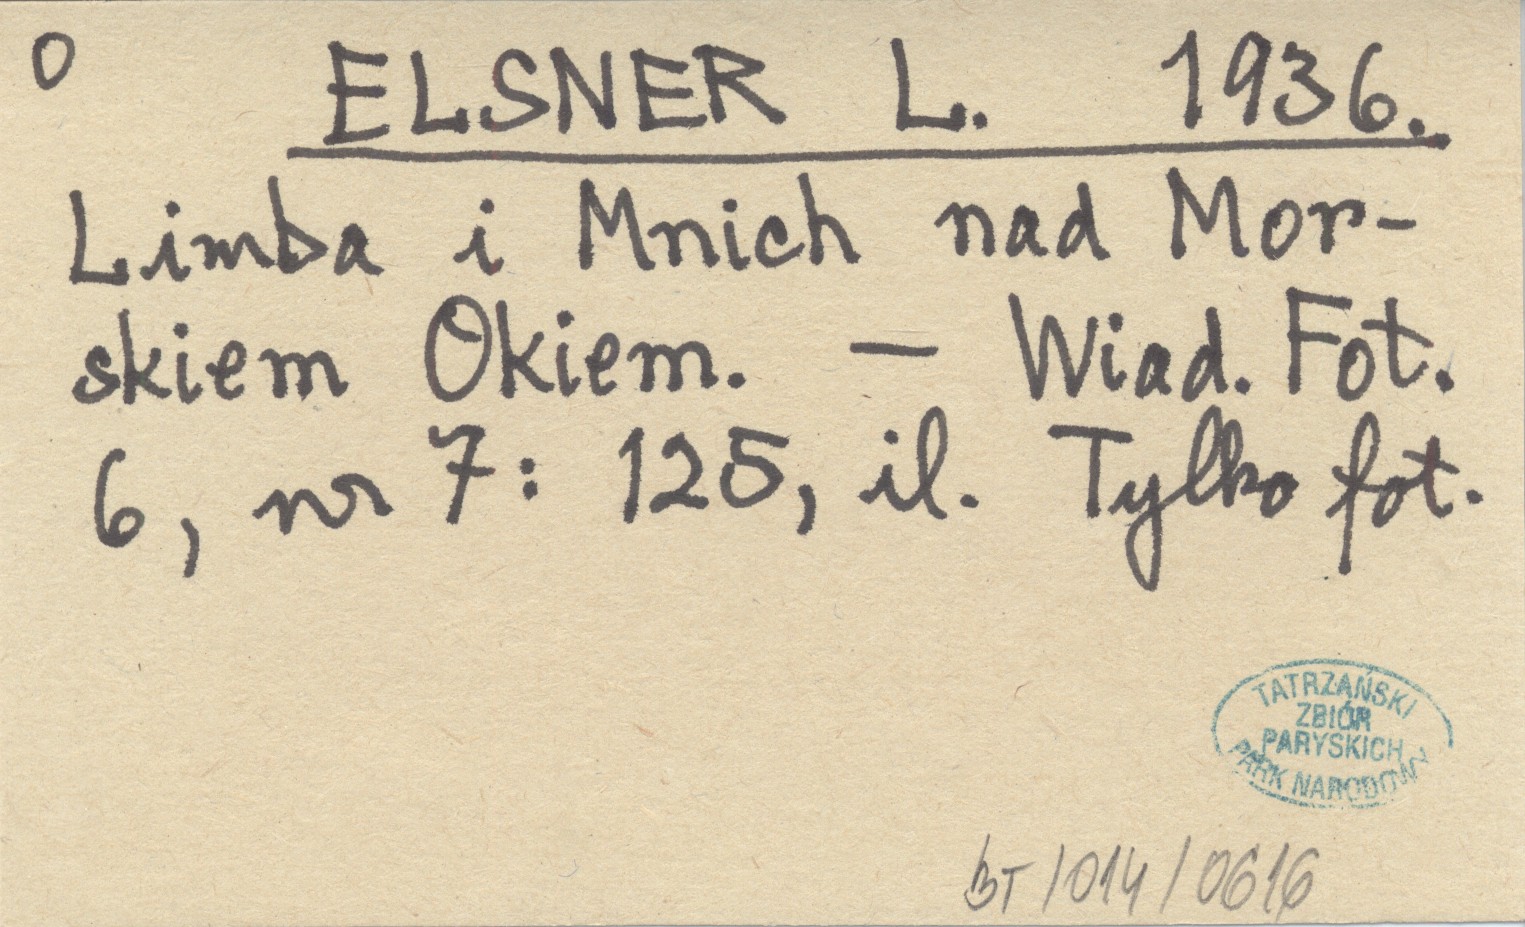 O
ELSNER L. 1936.
Limba i Mnich nad Mor-
skiem Okiem. — Wiad. Fot.
6, nr 7: 125, il. Tylko fot.
TATRZAŃSKI
ZBIÓR
PARYSKICH
PARK NARODOWY
BT/014/0616